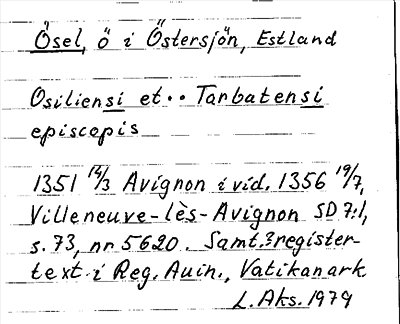 Ösel, ö i Östersjön, Estland
Osiliensi et.. Tarbatensi
episcopis
1351 12/3 Avignon i vid. 1356 19/7,
Villeneuve-lès-Avignon SD 7:1,
s. 73, nr 5620. Samt.? register-
text i Reg. Auin., Vatikanark
L. Aks. 1979